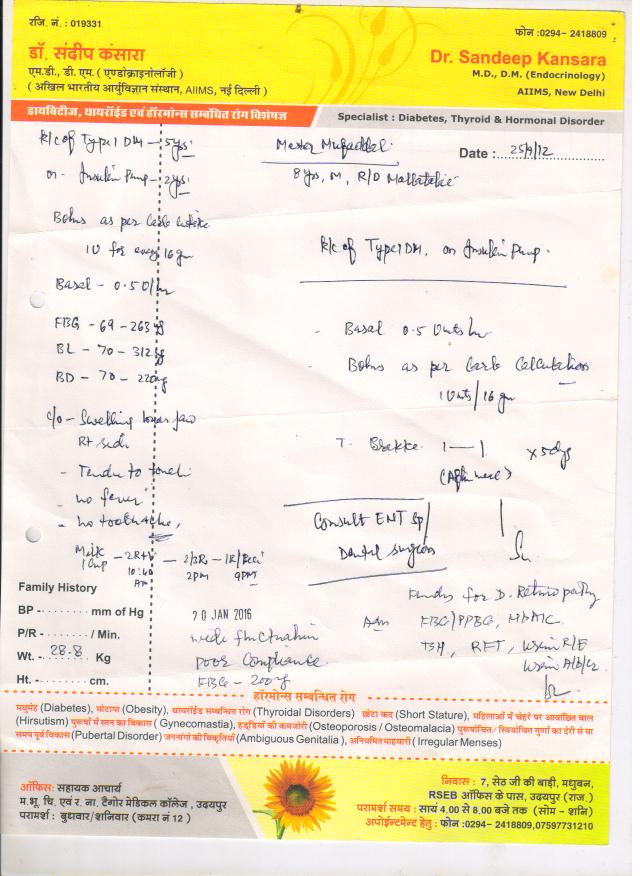 रजि. नं. : 019331
फोन :0294- 2418809
डॉ. संदीप कंसारा
एम.डी., डी.एम. ( एण्डोक्राइनोलॉजी )
( अखिल भारतीय आर्युविज्ञान संस्थान, AIIMS, नई दिल्ली )
Dr. Sandeep Kansara
M.D., D.M. (Endocrinology)
AIIMS, New Delhi
डायबिटीज, थायरॉईड एवं हॉरमोन्स सम्बंधित रोग विशेषज्ञ
Specialist : Diabetes, Thyroid & Hormonal Disorder
K/C of Type I DM - 5 yrs
on Insulin Pump - 2 yrs
Bolus as per Carb intake
1U for every 16 gm
Basal - 0.5 U/hr
FBG - 69 - 263
BL - 70 - 312
BD - 70 - 220
C/O - Swelling lower jaw
Rt side
- Tender to touch
- no fever
- no toothache,
Milk 1 Cup
10:40 AM
2PM
9PM
Master Mufaddal
Date : 25/9/12
8 yrs, M, R/O
K/C of Type I DM, on Insulin Pump.
- Basal 0.5 Units/hr
- Bolus as per Carb Calculation
1 Units/16 gm
T. 1 — 1 x 5 days
Consult ENT Sp
Dental surgeon
Fundus for D. Retinopathy
FBG/PPBG, HbA1C
TSH, RFT, Urine R/E
Urine A/C
Family History
BP - mm of Hg
P/R - / Min.
Wt. - 28.8 Kg
Ht. - cm.
20 JAN 2016
wide fluctuation
poor Compliance
FBG - 200
हॉरमोन्स सम्बन्धित रोग
मधुमेह (Diabetes), मोटापा (Obesity), थायरॉईड सम्बन्धित रोग (Thyroidal Disorders) छोटा कद (Short Stature), महिलाओं में चेहरे पर आवांछित बाल
(Hirsutism) पुरूषों में स्तन का विकास ( Gynecomastia), हड्डियों की कमजोरी (Osteoporosis / Osteomalacia) पुरूषोचित/ स्त्रियोचित गुणों का देरी से या
समय पूर्व विकास (Pubertal Disorder) जननांगो की विकृतियाँ (Ambiguous Genitalia ), अनियमित माहवारी ( Irregular Menses)
ऑफिस: सहायक आचार्य
म.भू. चि. एवं र. ना. टैगोर मेडिकल कॉलेज , उदयपुर
परामर्श : बुधवार/शनिवार (कमरा नं 12 )
निवास : 7, सेठ जी की बाड़ी, मधुबन,
RSEB ऑफिस के पास, उदयपुर (राज.)
परामर्श समय : सायं 4.00 से 8.00 बजे तक (सोम - शनि)
अपोईन्टमेन्ट हेतु : फोन :0294- 2418809,07597731210